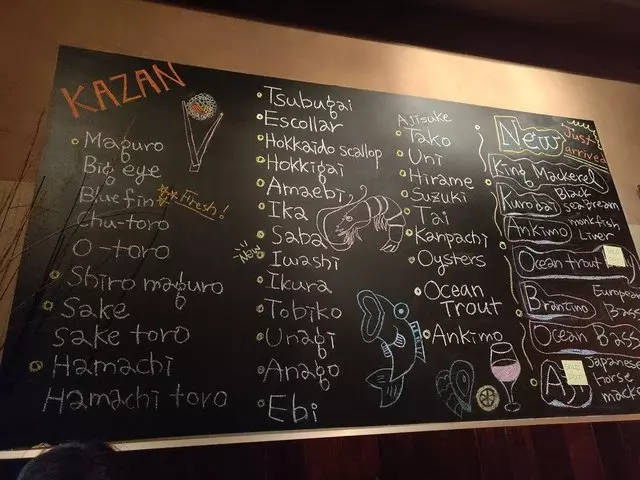 KAZAN
Maguro
Big eye
Bluefin Fresh!
Chu-toro
O-toro
Shiro maguro
Sake
sake toro
Hamachi
Hamachi toro
Tsubugai
Escollar
Hokkaido scallop
Hokkigai
Amaebi
Ika
Saba
New Iwashi
Ikura
Tobiko
Unagi
Anago
Ebi
Ajisuke
Tako
Uni
Hirame
Suzuki
Tai
Kanpachi
Oysters
Ocean
Trout
Ankimo
New Just
arrived
King Mackerel
Kurodai Black
sea bream
Ankimo monkfish
Liver
Ocean trout
Branzino
Bass
Ocean Bass
Japanese
horse